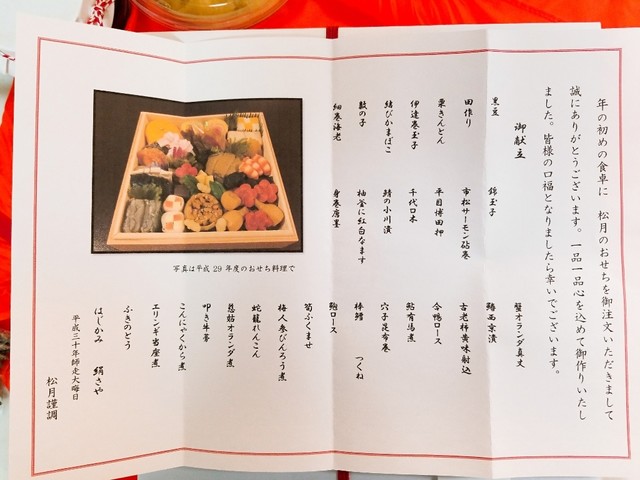 年の初めの食卓に　松月のおせちを御注文いただきまして
誠にありがとうございます。一品一品心を込めて御作りいたし
ました。皆様の口福となりましたら幸いでございます。
御献立
黒豆　錦玉子　蟹オランダ真丈
田作り　市松サーモン砧巻　鰆西京漬
栗きんとん　平目博田押　古老柿黄味射込
伊達巻玉子　千代呂木　合鴨ロース
結びかまぼこ　鯖の小川漬　鮎有馬煮
数の子　柚釜に紅白なます　穴子昆布巻
細巻海老　身巻唐墨　棒鱈　つくね
鮑ロース
筍ふくませ
梅人参びんろう煮
蛇籠れんこん
慈姑オランダ煮
叩き牛蒡
こんにゃくから煮
エリンギ当座煮
ふきのとう
はじかみ　絹さや
平成三十年師走大晦日
松月謹調
写真は平成 29 年度のおせち料理で